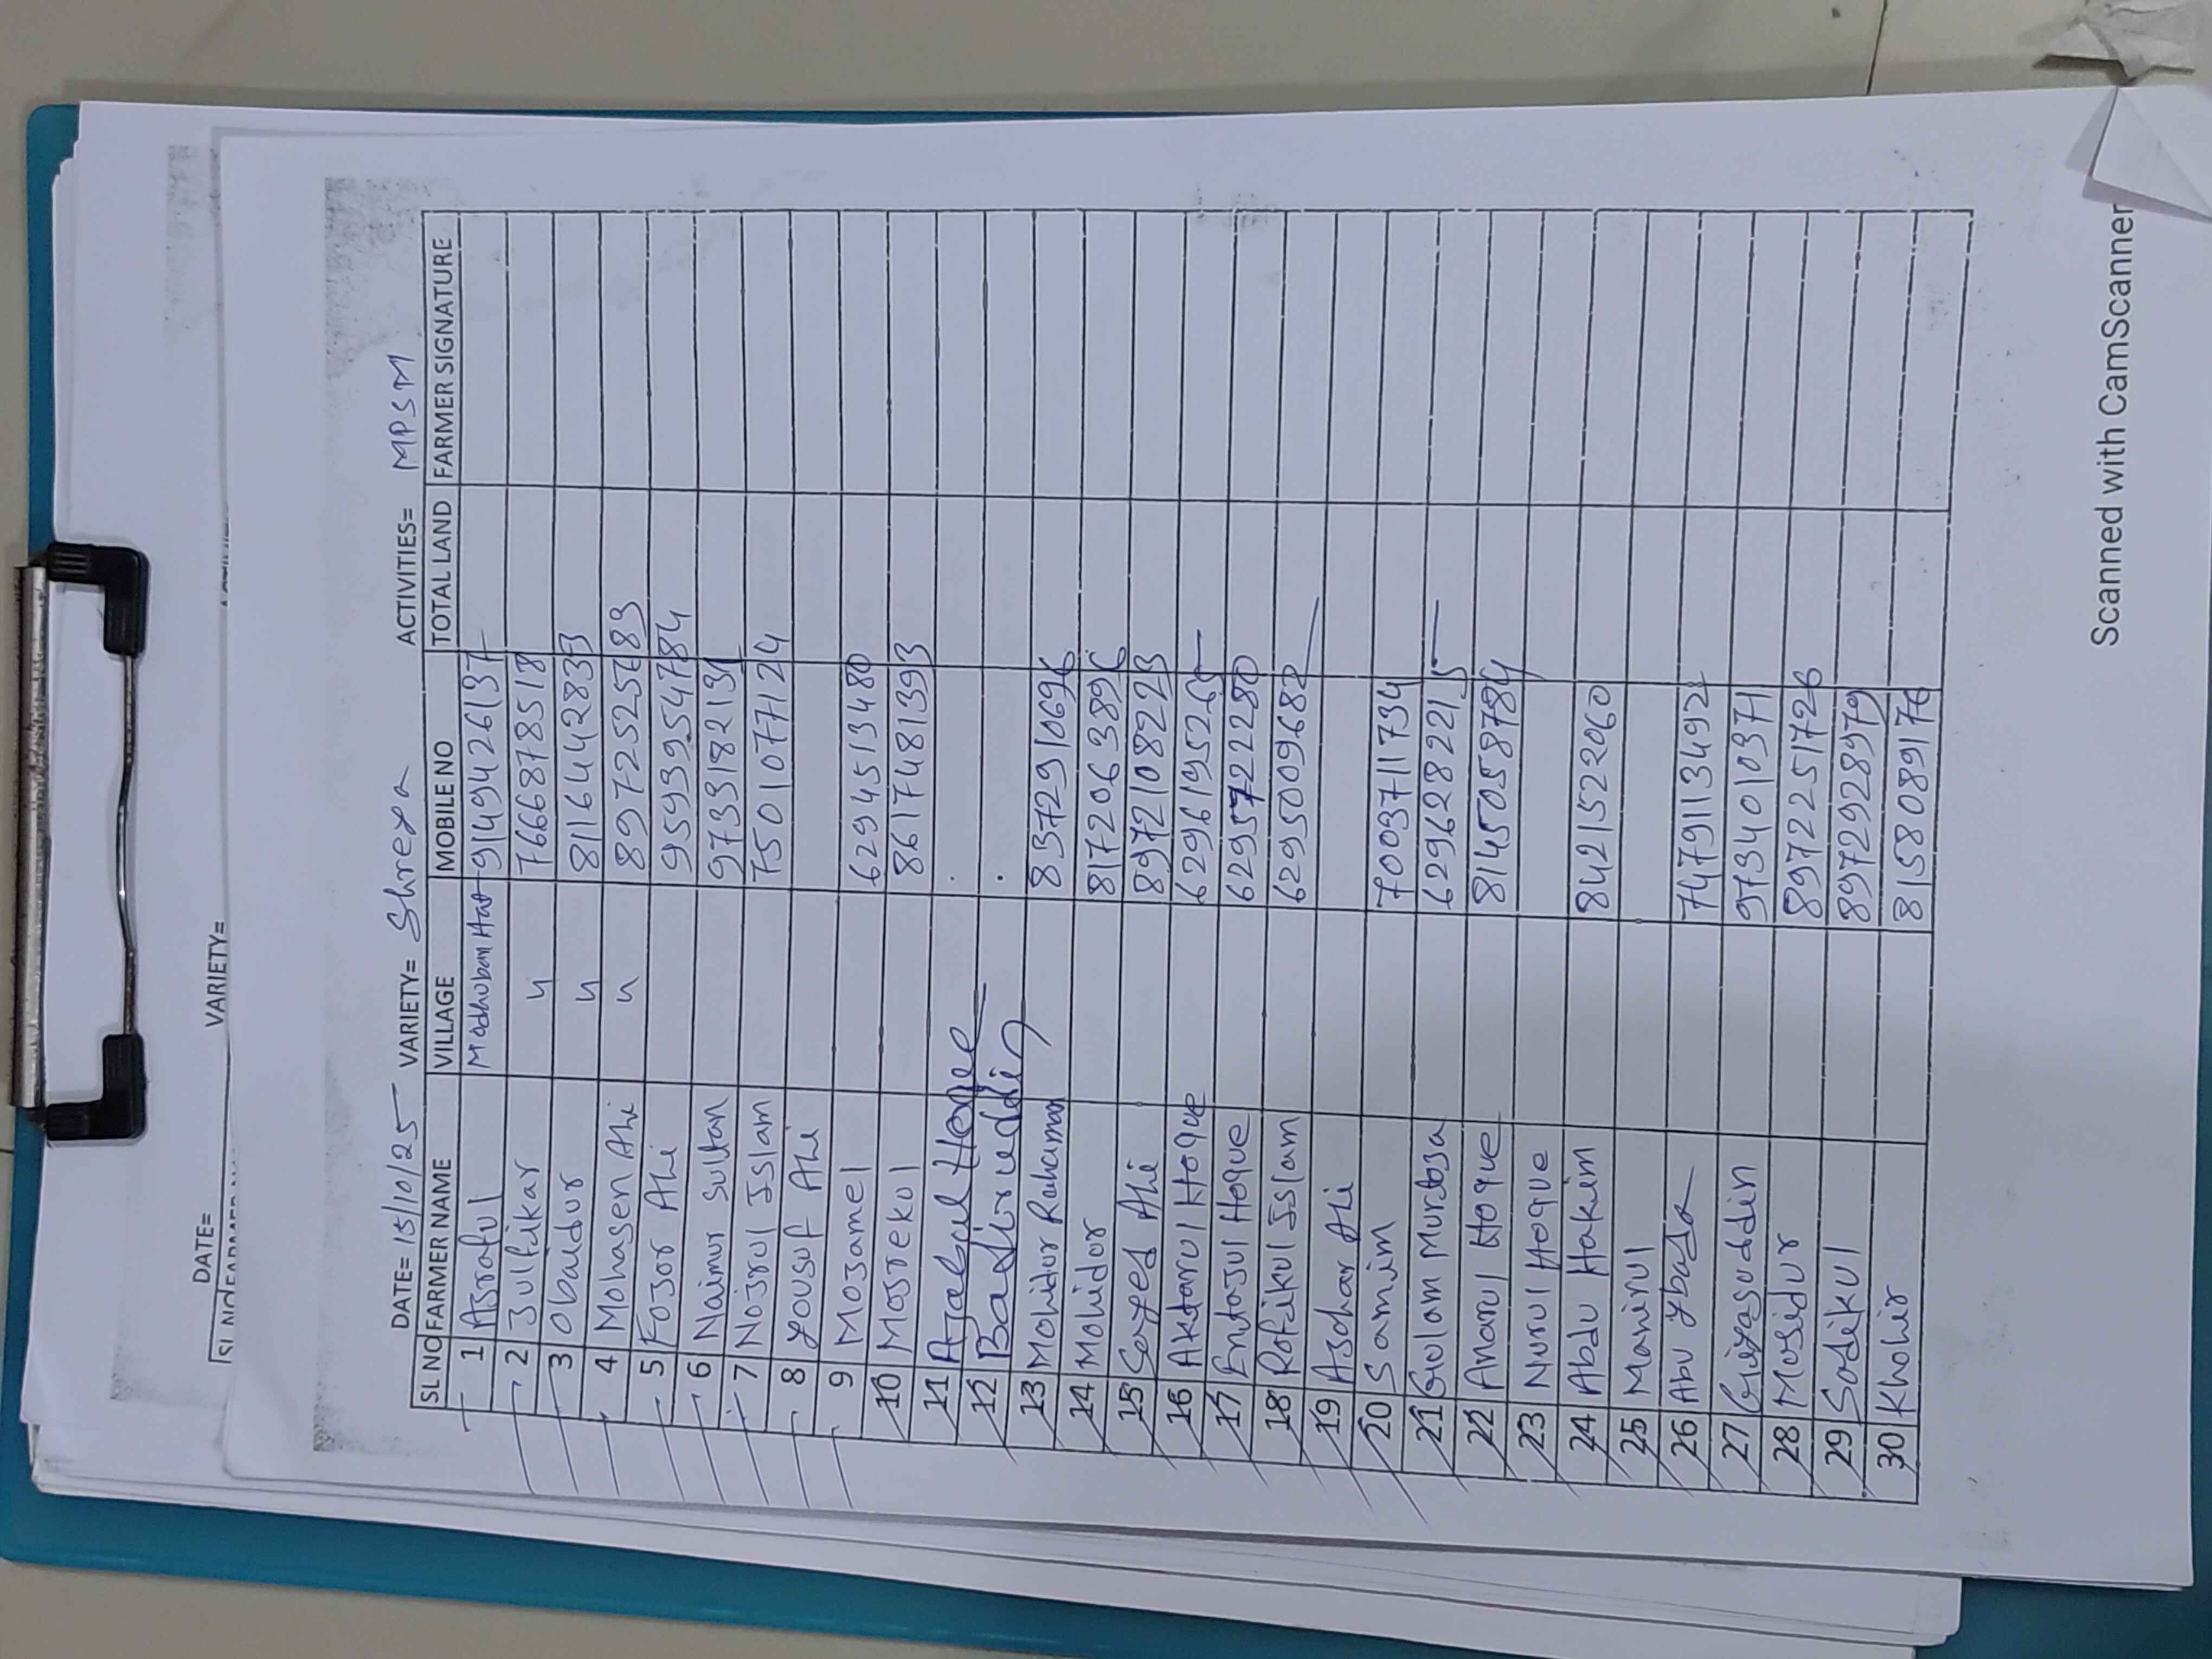 DATE=
VARIETY=
SL NO FARMER NAME
DATE= 15/10/25 VARIETY= Shreya ACTIVITIES= MPSM
SL NO FARMER NAME VILLAGE MOBILE NO TOTAL LAND FARMER SIGNATURE
1 Asraful Madhuban Hat 9149426137
2 Julfikar 〃 7666878518
3 Obaidur 〃 8116442833
4 Mohasen Ali 〃 8972525683
5 Fojor Ali 9593954784
6 Naimur Sultan 9733182131
7 Nojrul Islam 7501077124
8 Yousuf Ali
9 Mojamel 6294513480
10 Mojrekul 8617481393
11 Ajabul Hoque
12 Badiruddin
13 Mohidur Rahaman 8372910696
14 Mohidor 8172063896
15 Sayed Ali 8972108223
16 Aktarul Hoque 6296195265
17 Entajul Hoque 6295722280
18 Rofikul Islam 6295009682
19 Asohar Ali
20 Samim 7003711734
21 Golam Murtoja 6296282215
22 Anarul Hoque 8145058784
23 Nurul Hoque
24 Abdu Hakim 8421522060
25 Manirul
26 Abu 7479113492
27 Giyasuddin 9734010371
28 Mosidur 8972251726
29 Sodikul 8972928979
30 Khohir 8158089176
Scanned with CamScanner